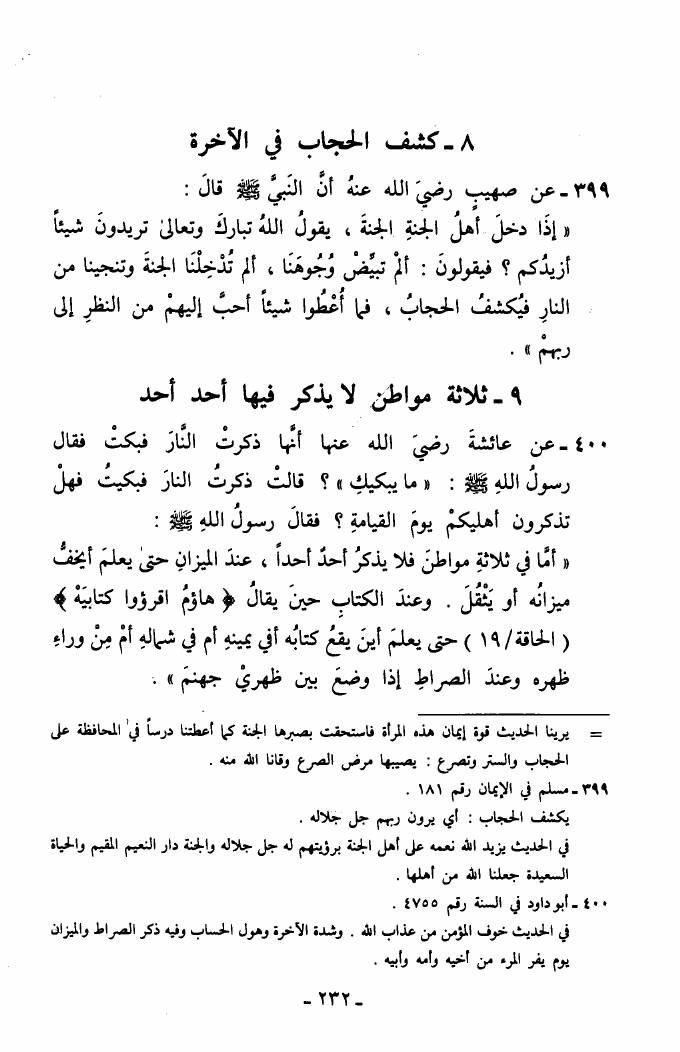 ٨ - كشف الحجاب في الآخرة
٣٩٩ - عن صهيبٍ رضيَ الله عنهُ أنَّ النَبيَّ ﷺ قالَ :
« إذَا دخلَ أهلُ الجنةِ الجنةَ ، يقولُ اللهُ تباركَ وتعالىٰ تريدونَ شيئاً
أزيدُكم ؟ فيقولونَ : ألمْ تبيِّضْ وُجُوهَنَا ، ألم تُدْخِلْنَا الجنةَ وتنجينا من
النارِ فيُكشفُ الحجابُ ، فما أُعْطُوا شيئاً أحبَّ إليهمْ من النظرِ إلى
ربهمْ » .
٩ - ثلاثة مواطن لا يذكر فيها أحد أحد
٤٠٠ - عن عائشةَ رضيَ الله عنها أنَّها ذكرتْ النَّارَ فبكتْ فقال
رسولُ اللهِ ﷺ : « ما يبكيكِ » ؟ قالتْ ذكرتُ النارَ فبكيتُ فهلْ
تذكرون أهليكمْ يومَ القيامةِ ؟ فقالَ رسولُ اللهِ ﷺ :
« أمَّا في ثلاثةِ مواطنَ فلا يذكرُ أحدٌ أحداً ، عندَ الميزانِ حتىٰ يعلمَ أيخفُّ
ميزانُه أو يَثْقُلَ . وعندَ الكتابِ حينَ يقالُ ﴿ هاؤمُ اقرؤوا كتابيَهْ ﴾
( الحاقة/١٩ ) حتى يعلمَ أينَ يقعُ كتابُه أفي يمينهِ أم في شمالهِ أمْ مِنْ وراءِ
ظهره وعندَ الصراطِ إذا وضعَ بين ظهريْ جهنمَ » .
= يرينا الحديث قوة إيمان هذه المرأة فاستحقت بصبرها الجنة كما أعطتنا درساً في المحافظة على
الحجاب والستر وتصرع : يصيبها مرض الصرع وقانا الله منه .
٣٩٩ - مسلم في الإيمان رقم ١٨١ .
يكشف الحجاب : أي يرون ربهم جل جلاله .
في الحديث يزيد الله نعمه على أهل الجنة برؤيتهم له جل جلاله والجنة دار النعيم المقيم والحياة
السعيدة جعلنا الله من أهلها .
٤٠٠ - أبو داود في السنة رقم ٤٧٥٥ .
في الحديث خوف المؤمن من عذاب الله . وشدة الآخرة وهول الحساب وفيه ذكر الصراط والميزان
يوم يفر المرء من أخيه وأمه وأبيه .
- ٢٣٢ -